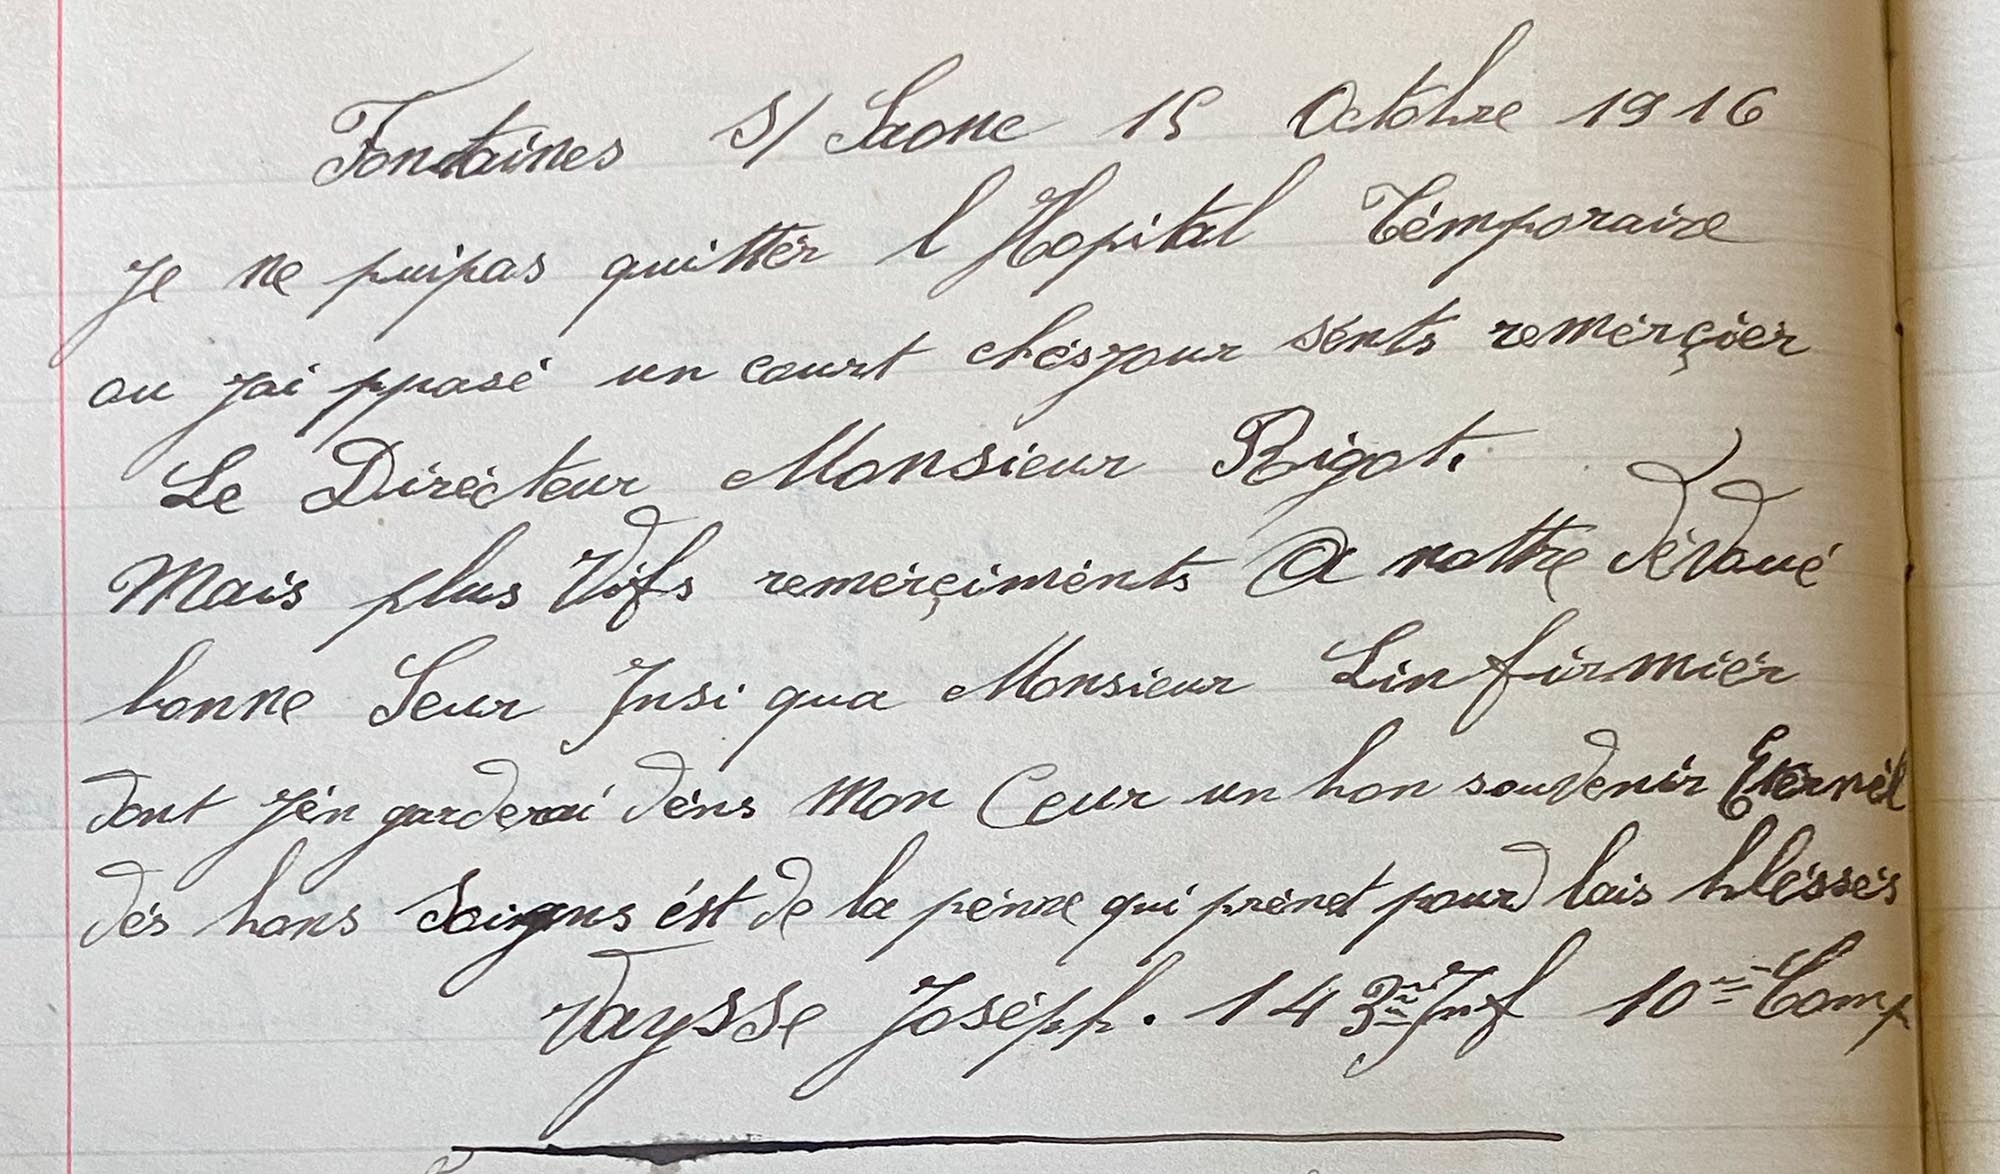 Fontaines S/ Saone 15 Octobre 1916
Je ne puipas quittér l Hopital Témporaire
ou jai ppasé un court chésjour sénts remérçiér
Le Dirécteur Monsieur Rigot.
Mais plus Vifs remérçiménts a nottre dévoué
bonne Seur Insi qua Monsieur Linfirmiér
dont jén garderai déns mon Ceur un bon souvenir Eternél
dés bons Soigns ést de la pénne qui prénet pour lais bléssés
Vaysse Joséph. 143me Inf 10me Comp